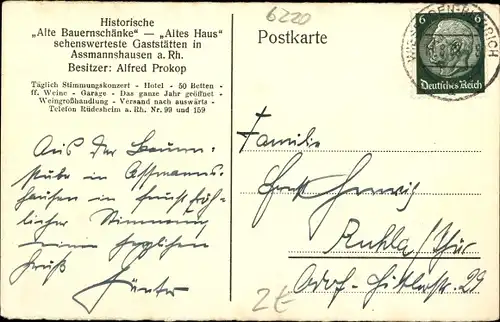 Historische
„Alte Bauernschänke" — „Altes Haus"
sehenswerteste Gaststätten in
Assmannshausen a. Rh.
Besitzer: Alfred Prokop
Täglich Stimmungskonzert - Hotel - 50 Betten -
ff. Weine - Garage - Das ganze Jahr geöffnet -
Weingroßhandlung - Versand nach auswärts -
Telefon Rüdesheim a. Rh. Nr. 99 und 159
Aus der Bauern-
stube in Assmanns-
hausen in feucht fröh-
licher Stimmung
meine herzlichen
Gruß
Günter
6220
Postkarte
6
Deutsches Reich
Familie
Ruhla/Thür
Adolf-Hitlerstr. 29
2€